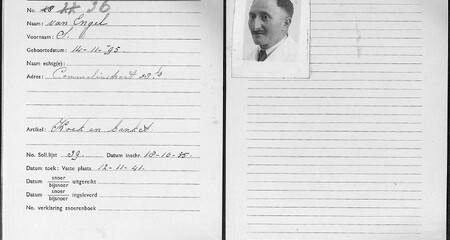 No. 18 36
Naam: van Engel
Voornaam: S.
Geboortedatum: 14-11-'95
Naam echtg(e):
Adres:
Artikel: Koek en banket
No. Soll.lijst 39. Datum inschr. 18-10-35.
Datum toek: Vaste plaats 12-11-41.
Datum snoer/bijsnoer uitgereikt
Datum snoer/bijsnoer ingeleverd
No. verklaring snoerenboek